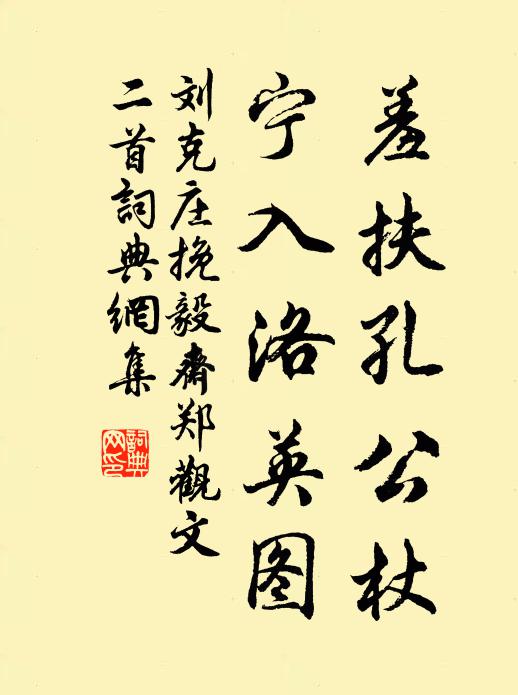 羞扶孔公杖
宁入洛英图
刘克庄挽毅斋郑觀文
二首詞典網集
詞典
网印